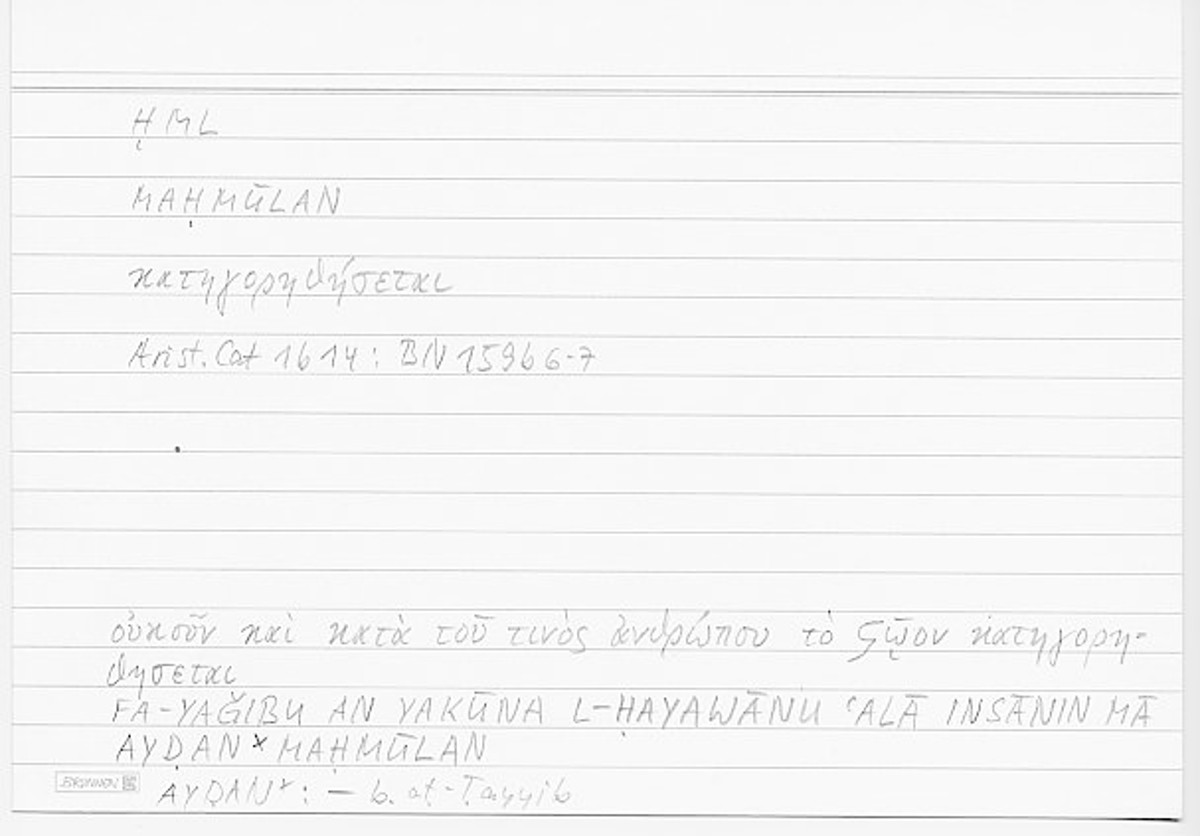 ḤML
MAḤMŪLAN
κατηγορηθήσεται
Arist. Cat 1b14: BN 159b6-7
οὐκοῦν καὶ κατὰ τοῦ τινὸς ἀνθρώπου τὸ ζῷον κατηγορη-
θησεται
FA-YAǦIBU AN YAKŪNA L-ḤAYAWĀNU ʿALĀ INSĀNIN MĀ
AYḌAN* MAḤMŪLAN
BRUNNEN
AYḌAN*: — b. aṭ-Ṭayyib